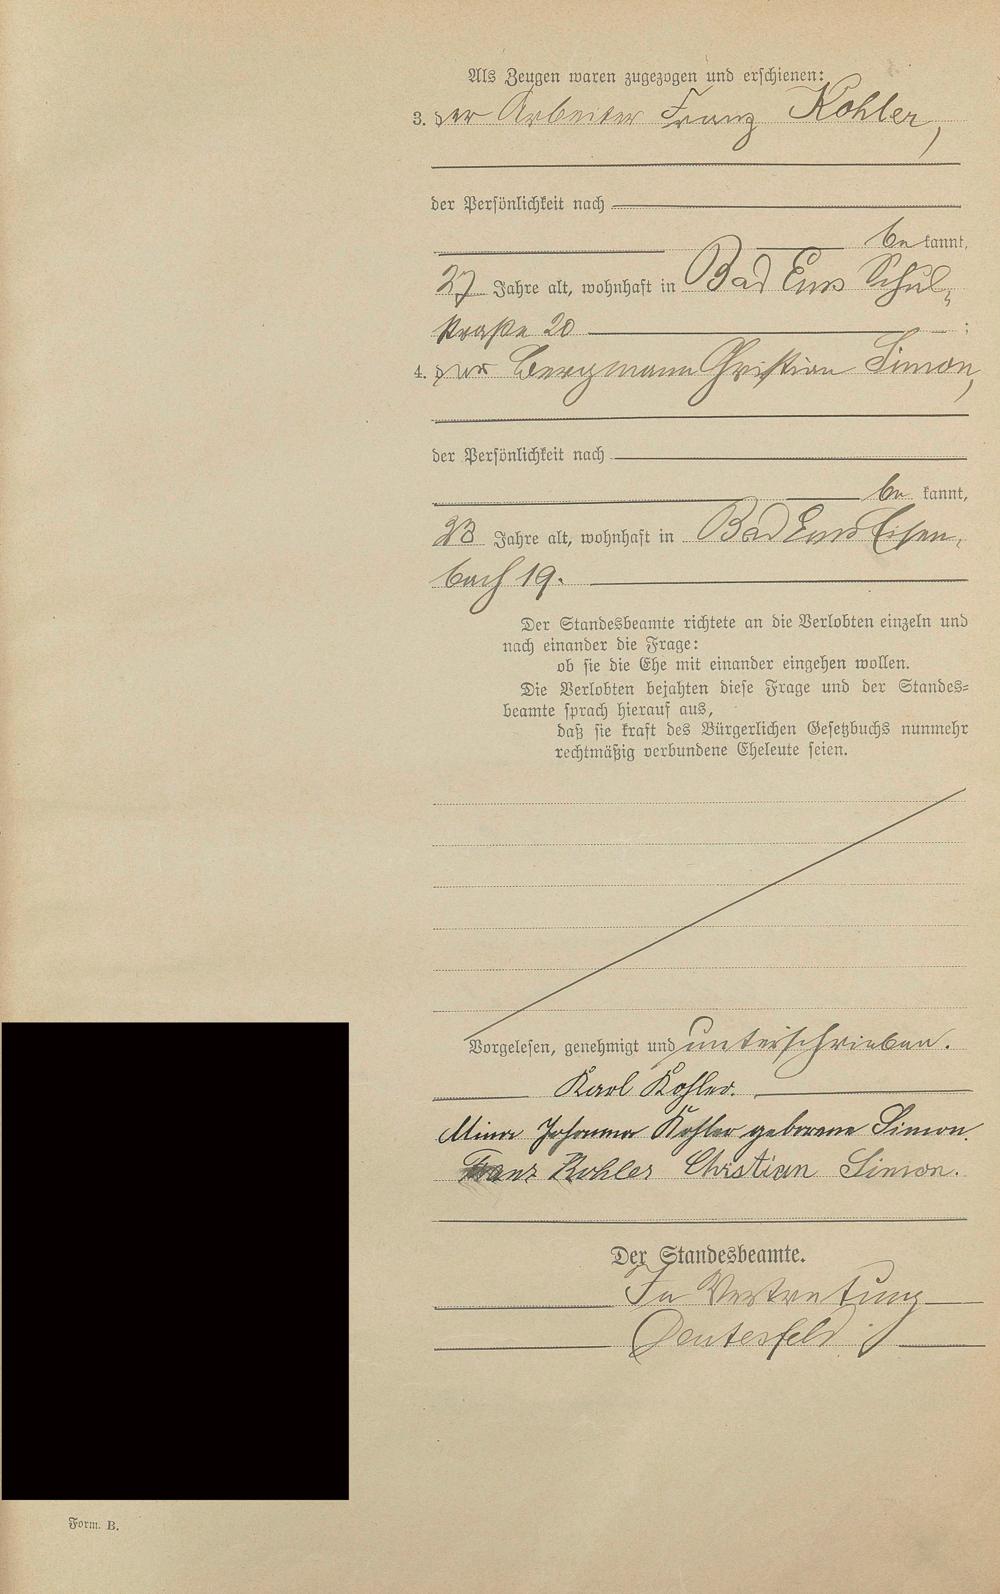 Als Zeugen waren zugezogen und erschienen:
3. der Arbeiter Franz Kohler,
der Persönlichkeit nach
be kannt,
27 Jahre alt, wohnhaft in Bad Ems Schul-
straße 20 ;
4. der Bergmann Christian Simon,
der Persönlichkeit nach
be kannt,
23 Jahre alt, wohnhaft in Bad Ems Eisen-
bach 19.
Der Standesbeamte richtete an die Verlobten einzeln und
nach einander die Frage:
ob sie die Ehe mit einander eingehen wollen.
Die Verlobten bejahten diese Frage und der Standes-
beamte sprach hierauf aus,
daß sie kraft des Bürgerlichen Gesetzbuchs nunmehr
rechtmäßig verbundene Eheleute seien.
Vorgelesen, genehmigt und unterschrieben.
Karl Kohler.
Mina Johanna Kohler geborene Simon.
Franz Kohler Christian Simon.
Der Standesbeamte.
In Vertretung
Deutesfeld
Form. B.